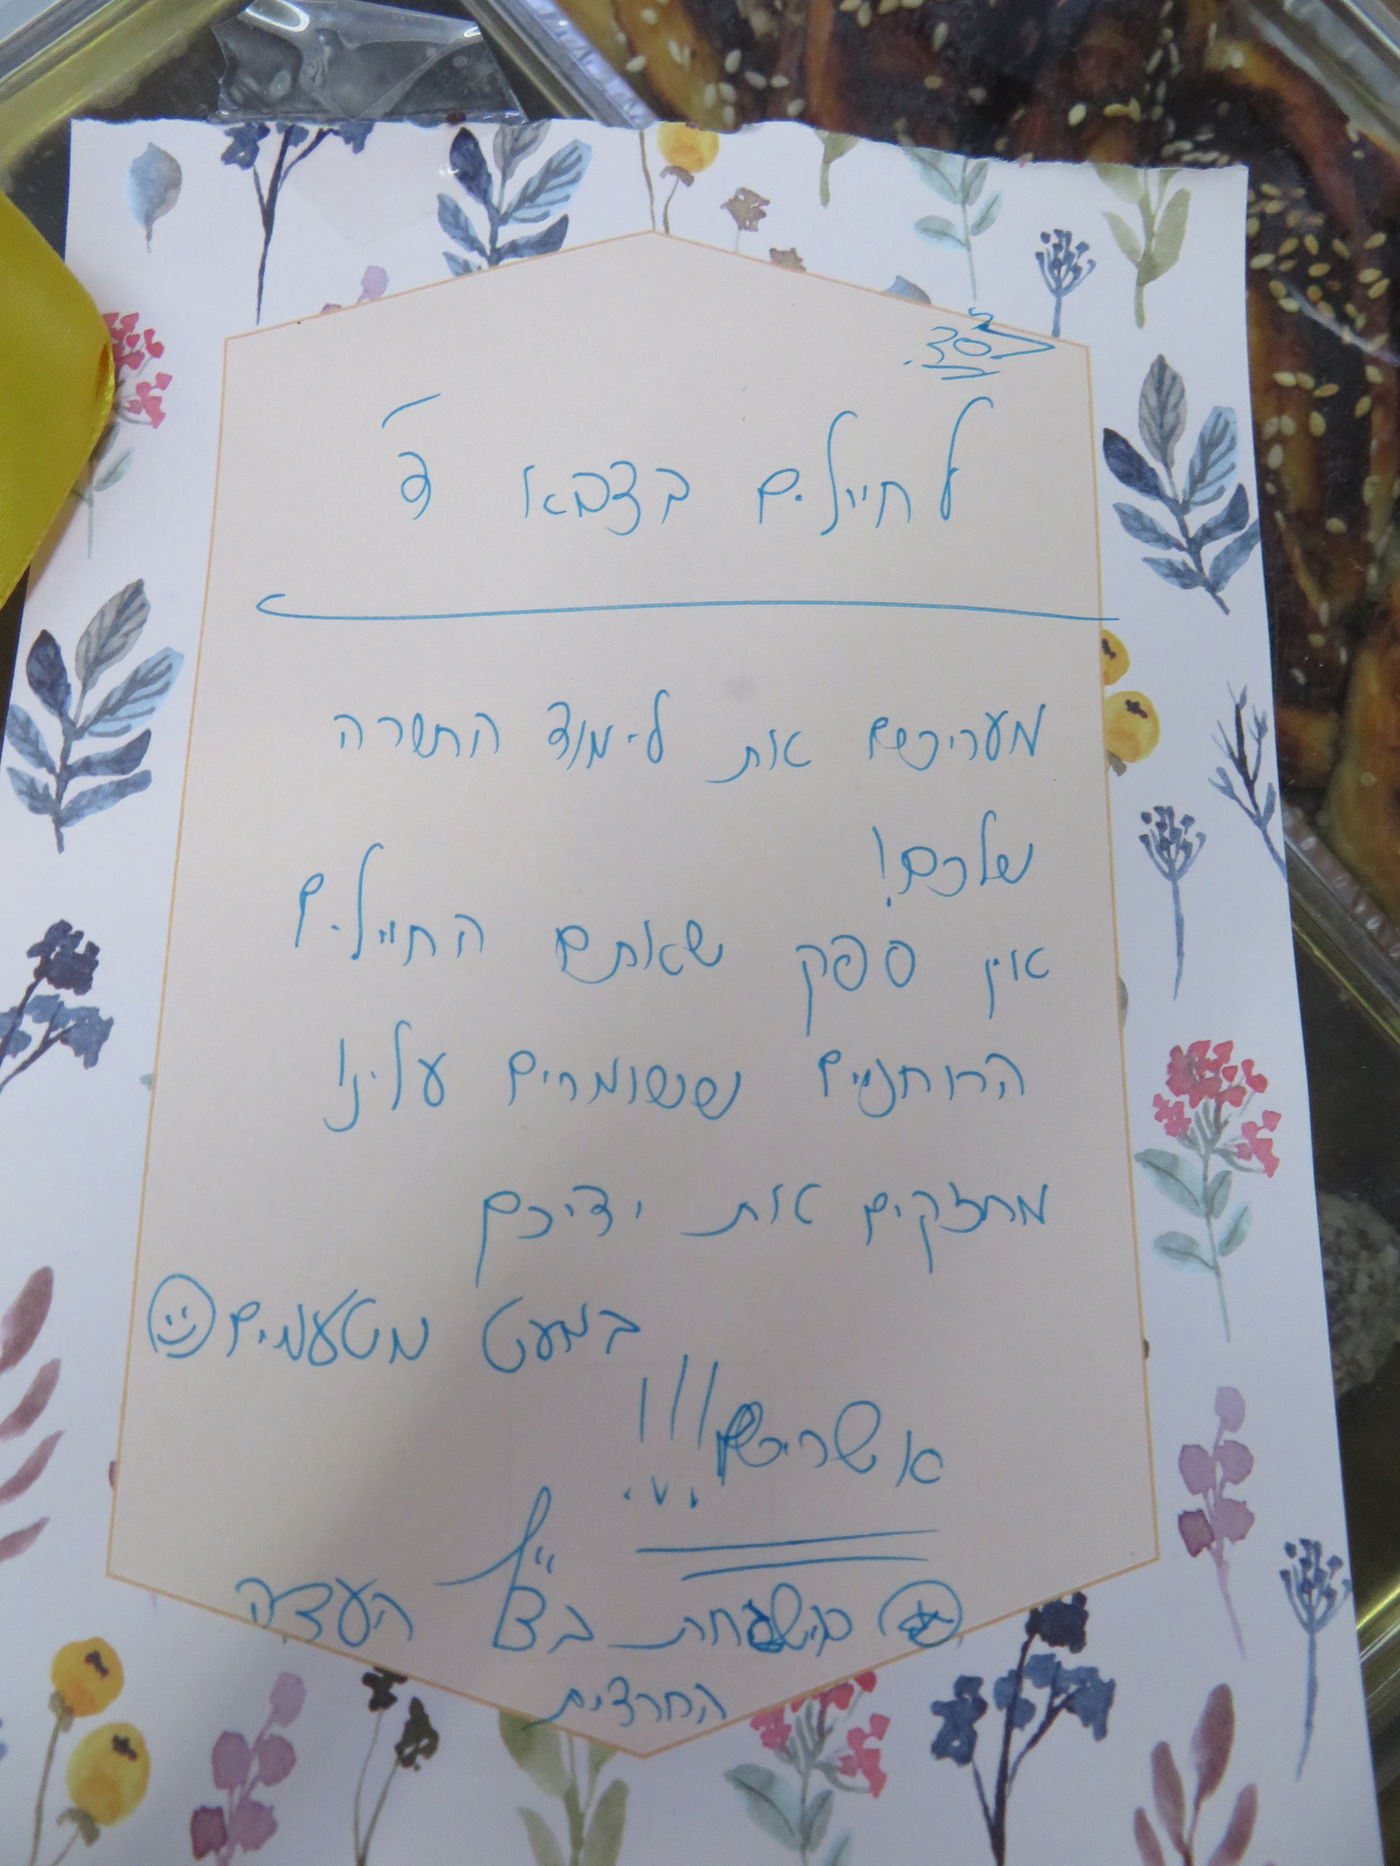 לחיילים בצבא ד'
מעריכים את לימוד התורה
שלכם!
אין ספק שאתם החיילים
הרוחניים ששומרים עלינו
מחזקים את ידיכם
במעט מטעמים
אשריכם!!!
משפחת העדה
החרדית